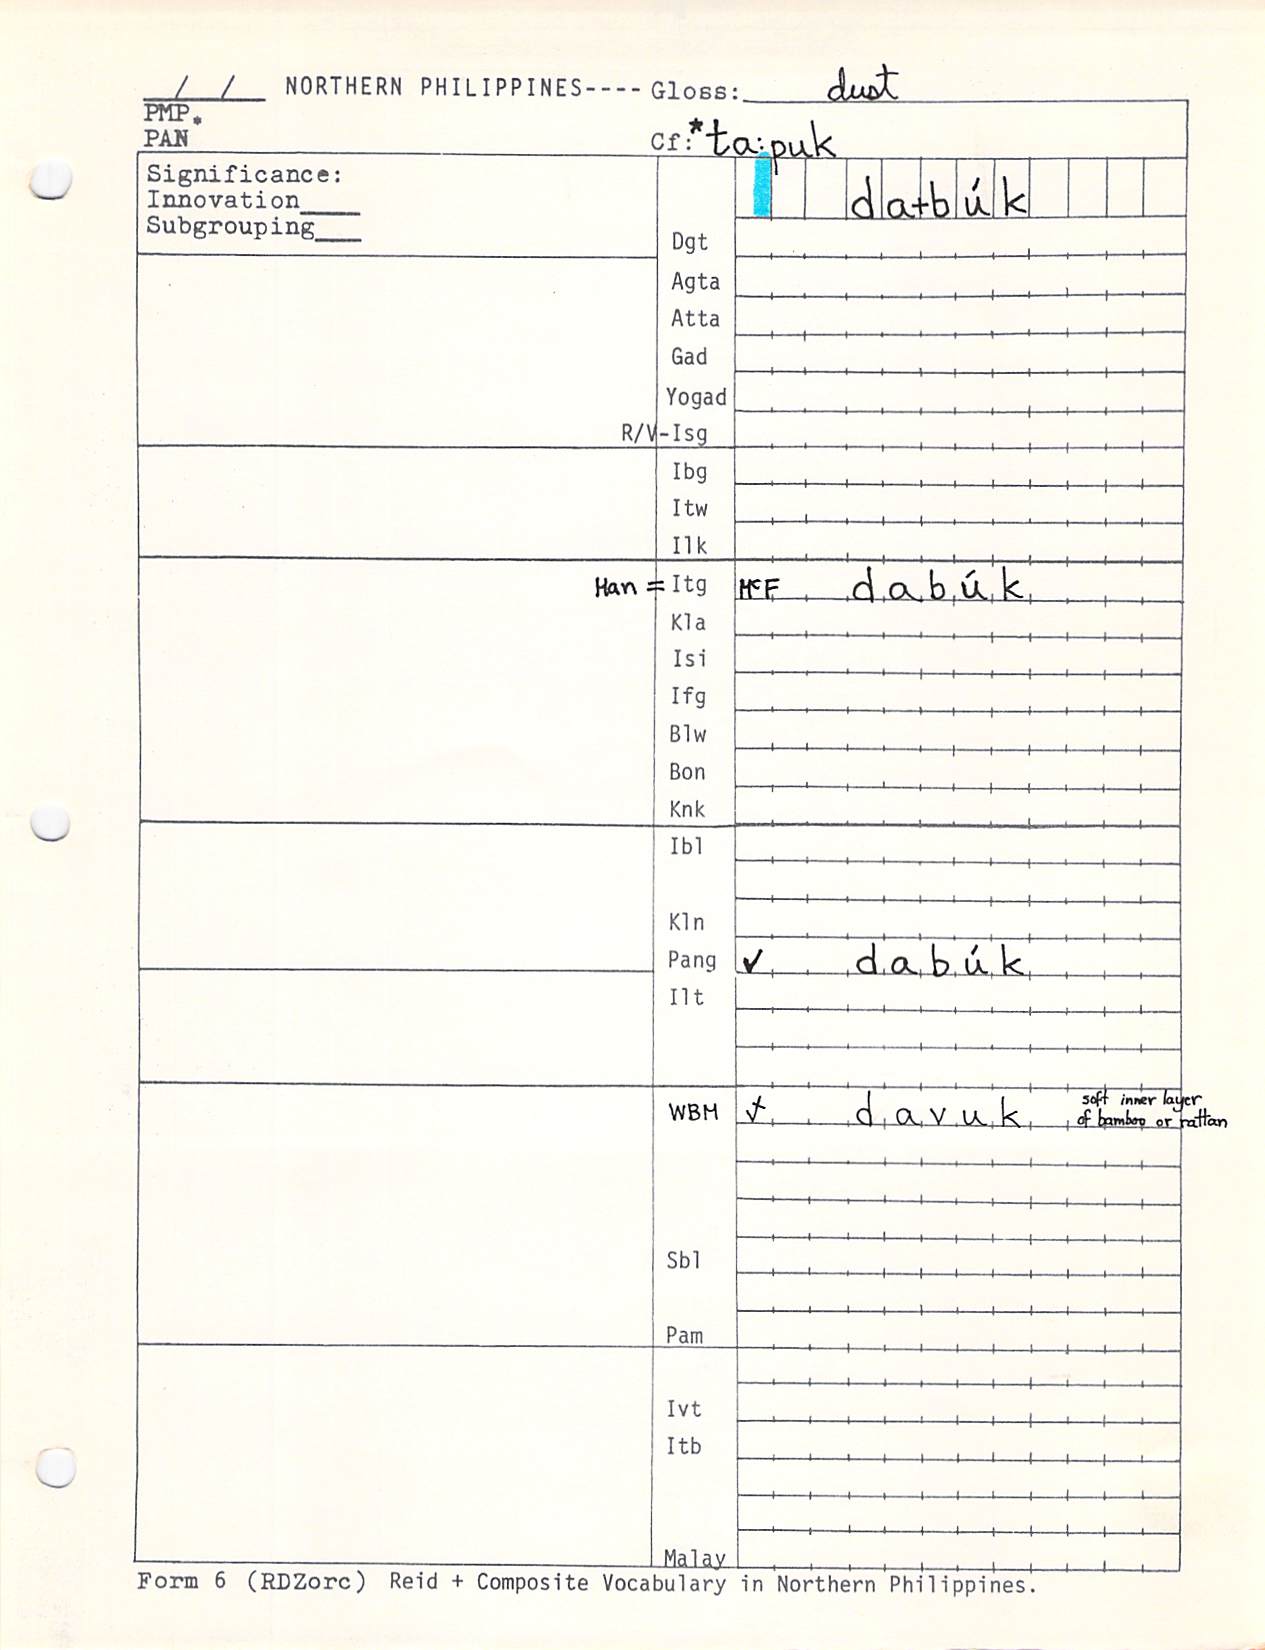 / / NORTHERN PHILIPPINES---- Gloss: dust
PMP.
PAN Cf: *ta:puk
Significance:
Innovation____
Subgrouping___
da+búk
Dgt
Agta
Atta
Gad
Yogad
R/V-Isg
Ibg
Itw
Ilk
Han = Itg McF dabúk
Kla
Isi
Ifg
Blw
Bon
Knk
Ibl
Kln
Pang ✓ dabúk
Ilt
WBM davuk soft inner layer
of bamboo or rattan
Sbl
Pam
Ivt
Itb
Malay
Form 6 (RDZorc) Reid + Composite Vocabulary in Northern Philippines.